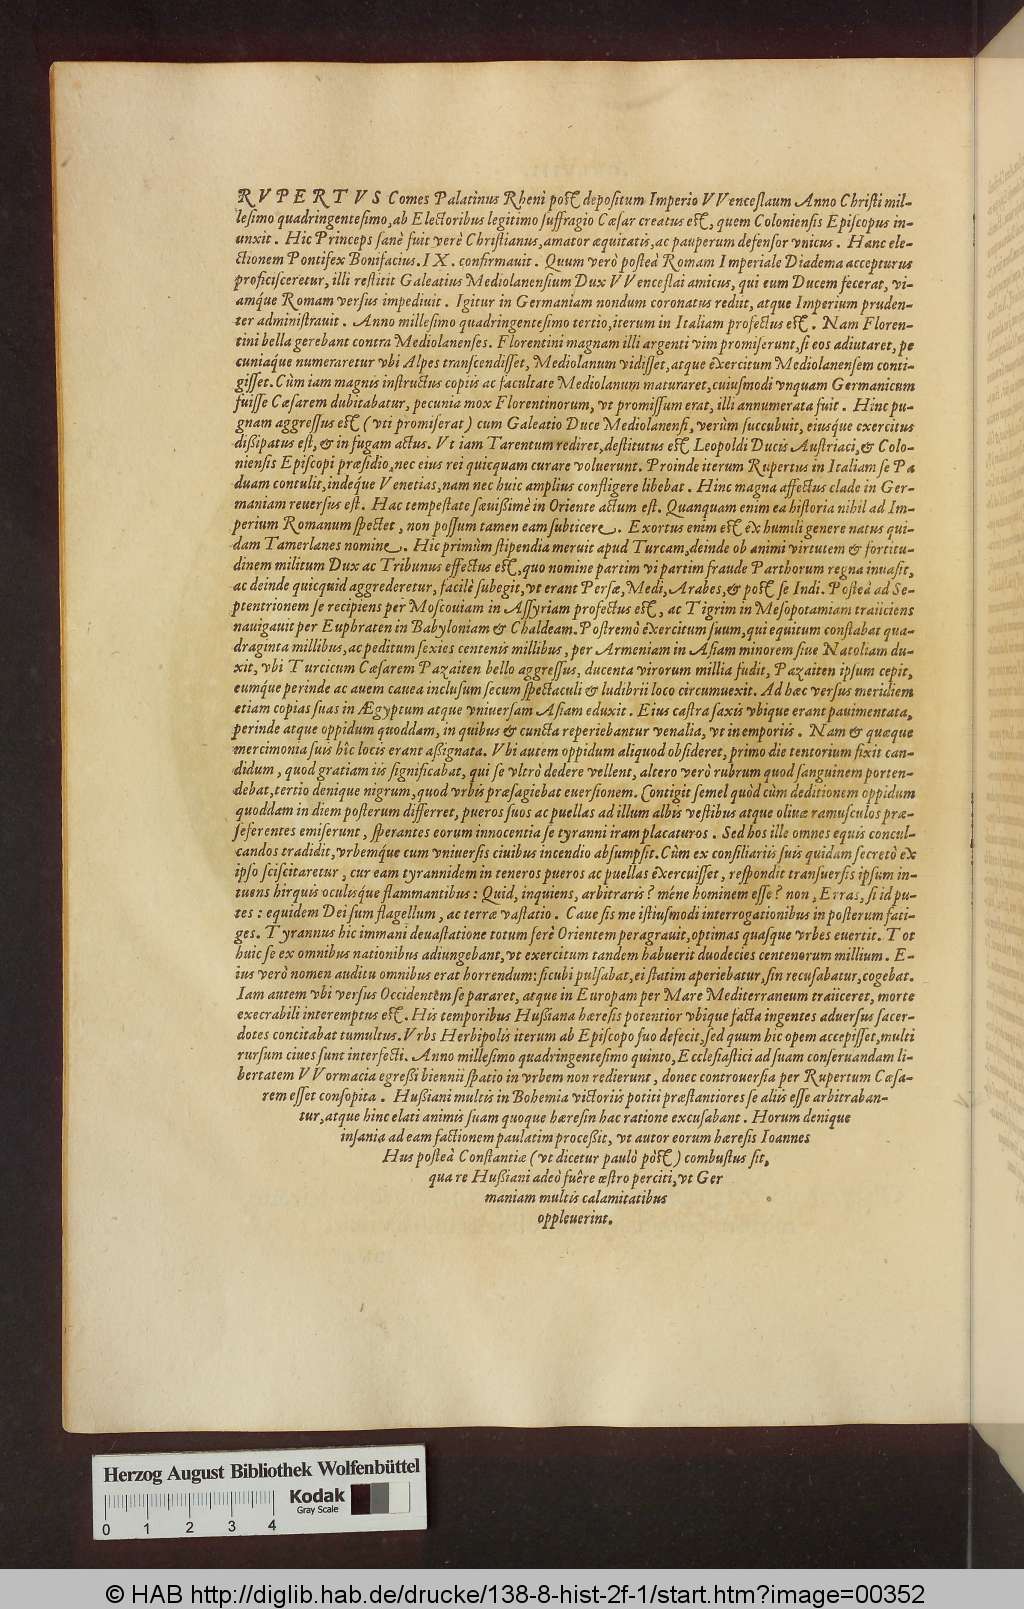 RVPERTVS Comes Palatinus Rheni post depositum Imperio VVenceslaum Anno Christi mil-
lesimo quadringentesimo, ab Electoribus legitimo suffragio Cæsar creatus est, quem Coloniensis Episcopus in-
unxit. Hic Princeps sanè fuit verè Christianus, amator æquitatis, ac pauperum defensor vnicus. Hanc ele-
ctionem Pontifex Bonifacius. IX. confirmauit. Quum verò posteà Romam Imperiale Diadema accepturus
proficisceretur, illi restitit Galeatius Mediolanensium Dux VVenceslai amicus, qui eum Ducem fecerat, vi-
amq́ue Romam versus impediuit. Igitur in Germaniam nondum coronatus rediit, atque Imperium pruden-
ter administrauit. Anno millesimo quadringentesimo tertio, iterum in Italiam profectus est. Nam Floren-
tini bella gerebant contra Mediolanenses. Florentini magnam illi argenti vim promiserunt, si eos adiutaret, pe
cuniaq́ue numeraretur vbi Alpes transcendisset, Mediolanum vidisset, atque exercitum Mediolanensem conti-
gisset. Cùm iam magnis instructus copiis ac facultate Mediolanum maturaret, cuiusmodi vnquam Germanicum
fuisse Cæsarem dubitabatur, pecunia mox Florentinorum, vt promissum erat, illi annumerata fuit. Hinc pu-
gnam aggressus est (vti promiserat) cum Galeatio Duce Mediolanensi, verùm succubuit, eiusque exercitus
dissipatus est, & in fugam actus. Vt iam Tarentum rediret, destitutus est Leopoldi Ducis Austriaci, & Colo-
niensis Episcopi præsidio, nec eius rei quicquam curare voluerunt. Proinde iterum Rupertus in Italiam se Pa
duam contulit, indeq́ue Venetias, nam nec huic amplius confligere libebat. Hinc magna affectus clade in Ger-
maniam reuersus est. Hac tempestate sæuißimè in Oriente actum est. Quanquam enim ea historia nihil ad Im-
perium Romanum spectet, non possum tamen eam subticere. Exortus enim est ex humili genere natus qui-
dam Tamerlanes nomine. Hic primùm stipendia meruit apud Turcam, deinde ob animi virtutem & fortitu-
dinem militum Dux ac Tribunus effectus est, quo nomine partim vi partim fraude Parthorum regna inuasit,
ac deinde quicquid aggrederetur, facilè subegit, vt erant Persæ, Medi, Arabes, & post se Indi. Posteà ad Se-
ptentrionem se recipiens per Moscouiam in Assyriam profectus est, ac Tigrim in Mesopotamiam traiiciens
nauigauit per Euphraten in Babyloniam & Chaldeam. Postremò exercitum suum, qui equitum constabat qua-
draginta millibus, ac peditum sexies centenis millibus, per Armeniam in Asiam minorem siue Natoliam du-
xit, vbi Turcicum Cæsarem Pazaiten bello aggressus, ducenta virorum millia fudit, Pazaiten ipsum cepit,
eumq́ue perinde ac auem cauea inclusum secum spectaculi & ludibrii loco circumuexit. Ad hæc versus meridiem
etiam copias suas in Ægyptum atque vniuersam Asiam eduxit. Eius castra saxis vbique erant pauimentata,
perinde atque oppidum quoddam, in quibus & cuncta reperiebantur venalia, vt in emporiis. Nam & quæque
mercimonia suis hîc locis erant aßignata. Vbi autem oppidum aliquod obsideret, primo die tentorium fixit can-
didum, quod gratiam iis significabat, qui se vltrò dedere vellent, altero verò rubrum quod sanguinem porten-
debat, tertio denique nigrum, quod vrbis præsagiebat euersionem. Contigit semel quòd cùm deditionem oppidum
quoddam in diem posterum differret, pueros suos ac puellas ad illum albis vestibus atque oliuæ ramusculos præ-
seferentes emiserunt, sperantes eorum innocentia se tyranni iram placaturos. Sed hos ille omnes equis concul-
candos tradidit, vrbemq́ue cum vniuersis ciuibus incendio absumpsit. Cùm ex consiliariis suis quidam secretò ex
ipso sciscitaretur, cur eam tyrannidem in teneros pueros ac puellas exercuisset, respondit transuersis ipsum in-
tuens hirquis oculisque flammantibus: Quid, inquiens, arbitraris? méne hominem esse? non, Erras, si id pu-
tes: equidem Dei sum flagellum, ac terræ vastatio. Caue sis me istiusmodi interrogationibus in posterum fati-
ges. Tyrannus hic immani deuastatione totum ferè Orientem peragrauit, optimas quasque vrbes euertit. Tot
huic se ex omnibus nationibus adiungebant, vt exercitum tandem habuerit duodecies centenorum millium. E-
ius verò nomen auditu omnibus erat horrendum: sicubi pulsabat, ei statim aperiebatur, sin recusabatur, cogebat.
Iam autem vbi versus Occidentem se pararet, atque in Europam per Mare Mediterraneum traiiceret, morte
execrabili interemptus est. His temporibus Hußiana hæresis potentior vbique facta ingentes aduersus sacer-
dotes concitabat tumultus. Vrbs Herbipolis iterum ab Episcopo suo defecit, sed quum hic opem accepisset, multi
rursum ciues sunt interfecti. Anno millesimo quadringentesimo quinto, Ecclesiastici ad suam conseruandam li-
bertatem VVormacia egreßi biennii spatio in vrbem non redierunt, donec controuersia per Rupertum Cæsa-
rem esset consopita. Hußiani multis in Bohemia victoriis potiti præstantiores se aliis esse arbitraban-
tur, atque hinc elati animis suam quoque hæresin hac ratione excusabant. Horum denique
insania ad eam factionem paulatim proceßit, vt autor eorum hæresis Ioannes
Hus posteà Constantiæ (vt dicetur paulò pòst) combustus sit,
qua re Hußiani adeò fuêre œstro perciti, vt Ger
maniam multis calamitatibus
oppleuerint.
Herzog August Bibliothek Wolfenbüttel
Kodak
Gray Scale
0 1 2 3 4
© HAB http://diglib.hab.de/drucke/138-8-hist-2f-1/start.htm?image=00352